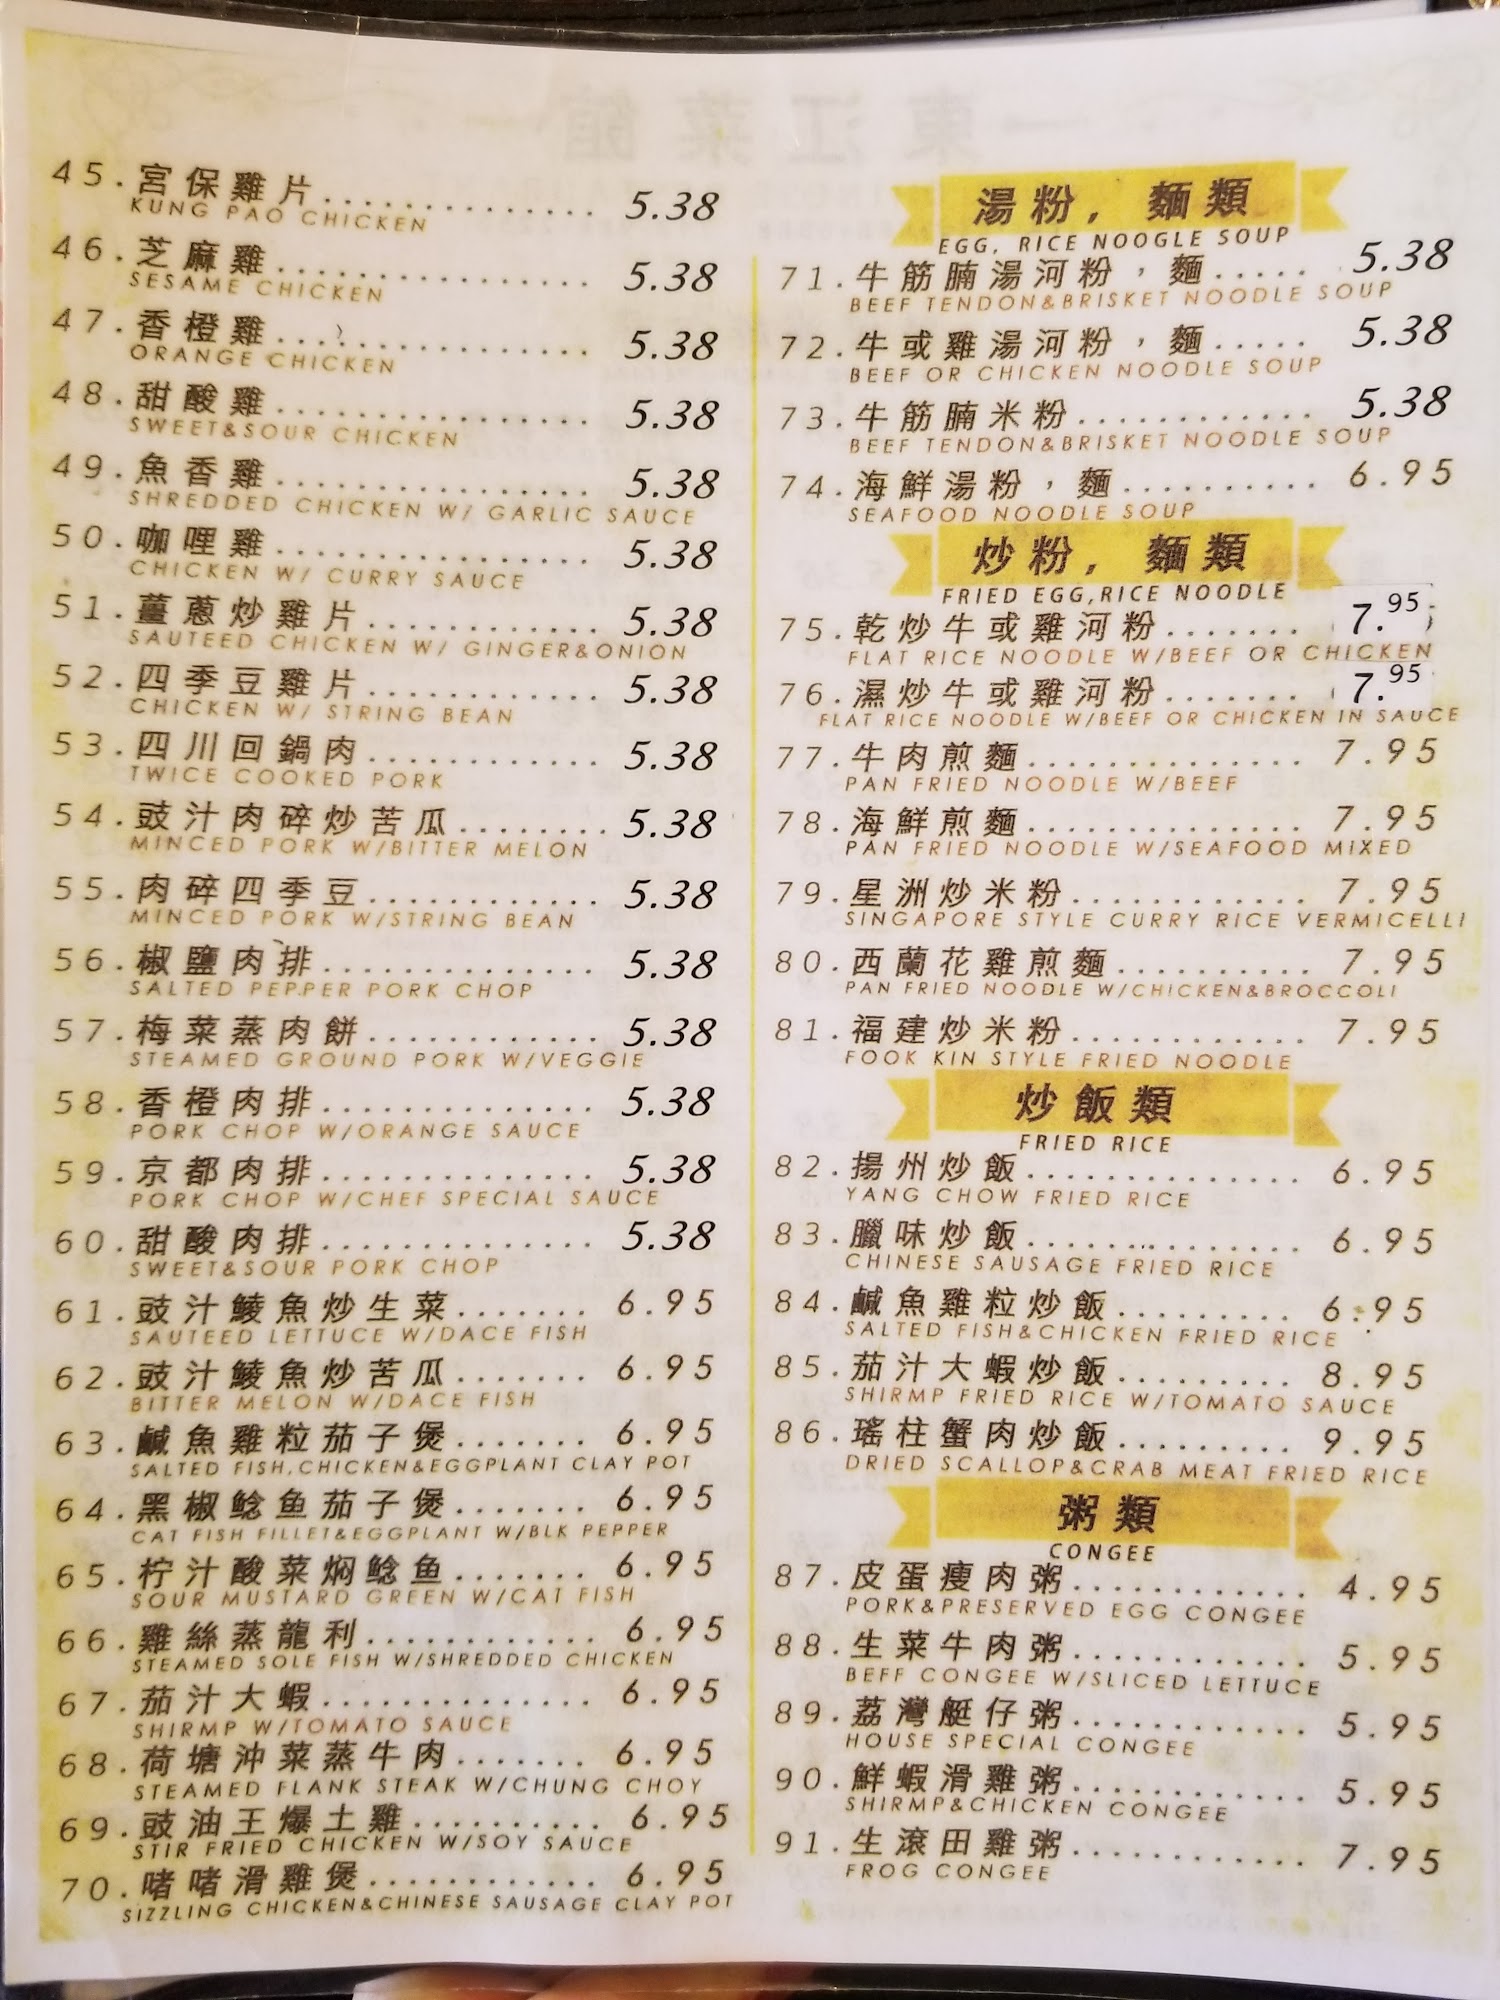 45.宮保雞片.............. 5.38
KUNG PAO CHICKEN
46.芝麻雞................ 5.38
SESAME CHICKEN
47.香橙雞................ 5.38
ORANGE CHICKEN
48.甜酸雞................ 5.38
SWEET&SOUR CHICKEN
49.魚香雞................ 5.38
SHREDDED CHICKEN W/ GARLIC SAUCE
50.咖哩雞................ 5.38
CHICKEN W/ CURRY SAUCE
51.薑蔥炒雞片............ 5.38
SAUTEED CHICKEN W/ GINGER&ONION
52.四季豆雞片............ 5.38
CHICKEN W/ STRING BEAN
53.四川回鍋肉............ 5.38
TWICE COOKED PORK
54.豉汁肉碎炒苦瓜........ 5.38
MINCED PORK W/BITTER MELON
55.肉碎四季豆............ 5.38
MINCED PORK W/STRING BEAN
56.椒鹽肉排.............. 5.38
SALTED PEPPER PORK CHOP
57.梅菜蒸肉餅............ 5.38
STEAMED GROUND PORK W/VEGGIE
58.香橙肉排.............. 5.38
PORK CHOP W/ORANGE SAUCE
59.京都肉排.............. 5.38
PORK CHOP W/CHEF SPECIAL SAUCE
60.甜酸肉排.............. 5.38
SWEET&SOUR PORK CHOP
61.豉汁鯪魚炒生菜....... 6.95
SAUTEED LETTUCE W/DACE FISH
62.豉汁鯪魚炒苦瓜....... 6.95
BITTER MELON W/DACE FISH
63.鹹魚雞粒茄子煲....... 6.95
SALTED FISH,CHICKEN&EGGPLANT CLAY POT
64.黑椒鲶鱼茄子煲....... 6.95
CAT FISH FILLET&EGGPLANT W/BLK PEPPER
65.柠汁酸菜焖鲶鱼....... 6.95
SOUR MUSTARD GREEN W/CAT FISH
66.雞絲蒸龍利............ 6.95
STEAMED SOLE FISH W/SHREDDED CHICKEN
67.茄汁大蝦.............. 6.95
SHIRMP W/TOMATO SAUCE
68.荷塘沖菜蒸牛肉....... 6.95
STEAMED FLANK STEAK W/CHUNG CHOY
69.豉油王爆土雞.......... 6.95
STIR FRIED CHICKEN W/SOY SAUCE
70.啫啫滑雞煲............ 6.95
SIZZLING CHICKEN&CHINESE SAUSAGE CLAY POT
湯粉, 麵類
EGG, RICE NOOGLE SOUP
71.牛筋腩湯河粉，麵..... 5.38
BEEF TENDON&BRISKET NOODLE SOUP
72.牛或雞湯河粉，麵..... 5.38
BEEF OR CHICKEN NOODLE SOUP
73.牛筋腩米粉............ 5.38
BEEF TENDON&BRISKET NOODLE SOUP
74.海鮮湯粉，麵.......... 6.95
SEAFOOD NOODLE SOUP
炒粉, 麵類
FRIED EGG,RICE NOODLE
75.乾炒牛或雞河粉....... 7.95
FLAT RICE NOODLE W/BEEF OR CHICKEN
76.濕炒牛或雞河粉....... 7.95
FLAT RICE NOODLE W/BEEF OR CHICKEN IN SAUCE
77.牛肉煎麵.............. 7.95
PAN FRIED NOODLE W/BEEF
78.海鮮煎麵.............. 7.95
PAN FRIED NOODLE W/SEAFOOD MIXED
79.星洲炒米粉............ 7.95
SINGAPORE STYLE CURRY RICE VERMICELLI
80.西蘭花雞煎麵.......... 7.95
PAN FRIED NOODLE W/CHICKEN&BROCCOLI
81.福建炒米粉............ 7.95
FOOK KIN STYLE FRIED NOODLE
炒飯類
FRIED RICE
82.揚州炒飯.............. 6.95
YANG CHOW FRIED RICE
83.臘味炒飯.............. 6.95
CHINESE SAUSAGE FRIED RICE
84.鹹魚雞粒炒飯......... 6.95
SALTED FISH&CHICKEN FRIED RICE
85.茄汁大蝦炒飯......... 8.95
SHIRMP FRIED RICE W/TOMATO SAUCE
86.瑤柱蟹肉炒飯......... 9.95
DRIED SCALLOP&CRAB MEAT FRIED RICE
粥類
CONGEE
87.皮蛋瘦肉粥............ 4.95
PORK&PRESERVED EGG CONGEE
88.生菜牛肉粥............ 5.95
BEFF CONGEE W/SLICED LETTUCE
89.荔灣艇仔粥............ 5.95
HOUSE SPECIAL CONGEE
90.鮮蝦滑雞粥............ 5.95
SHIRMP&CHICKEN CONGEE
91.生滾田雞粥............ 7.95
FROG CONGEE